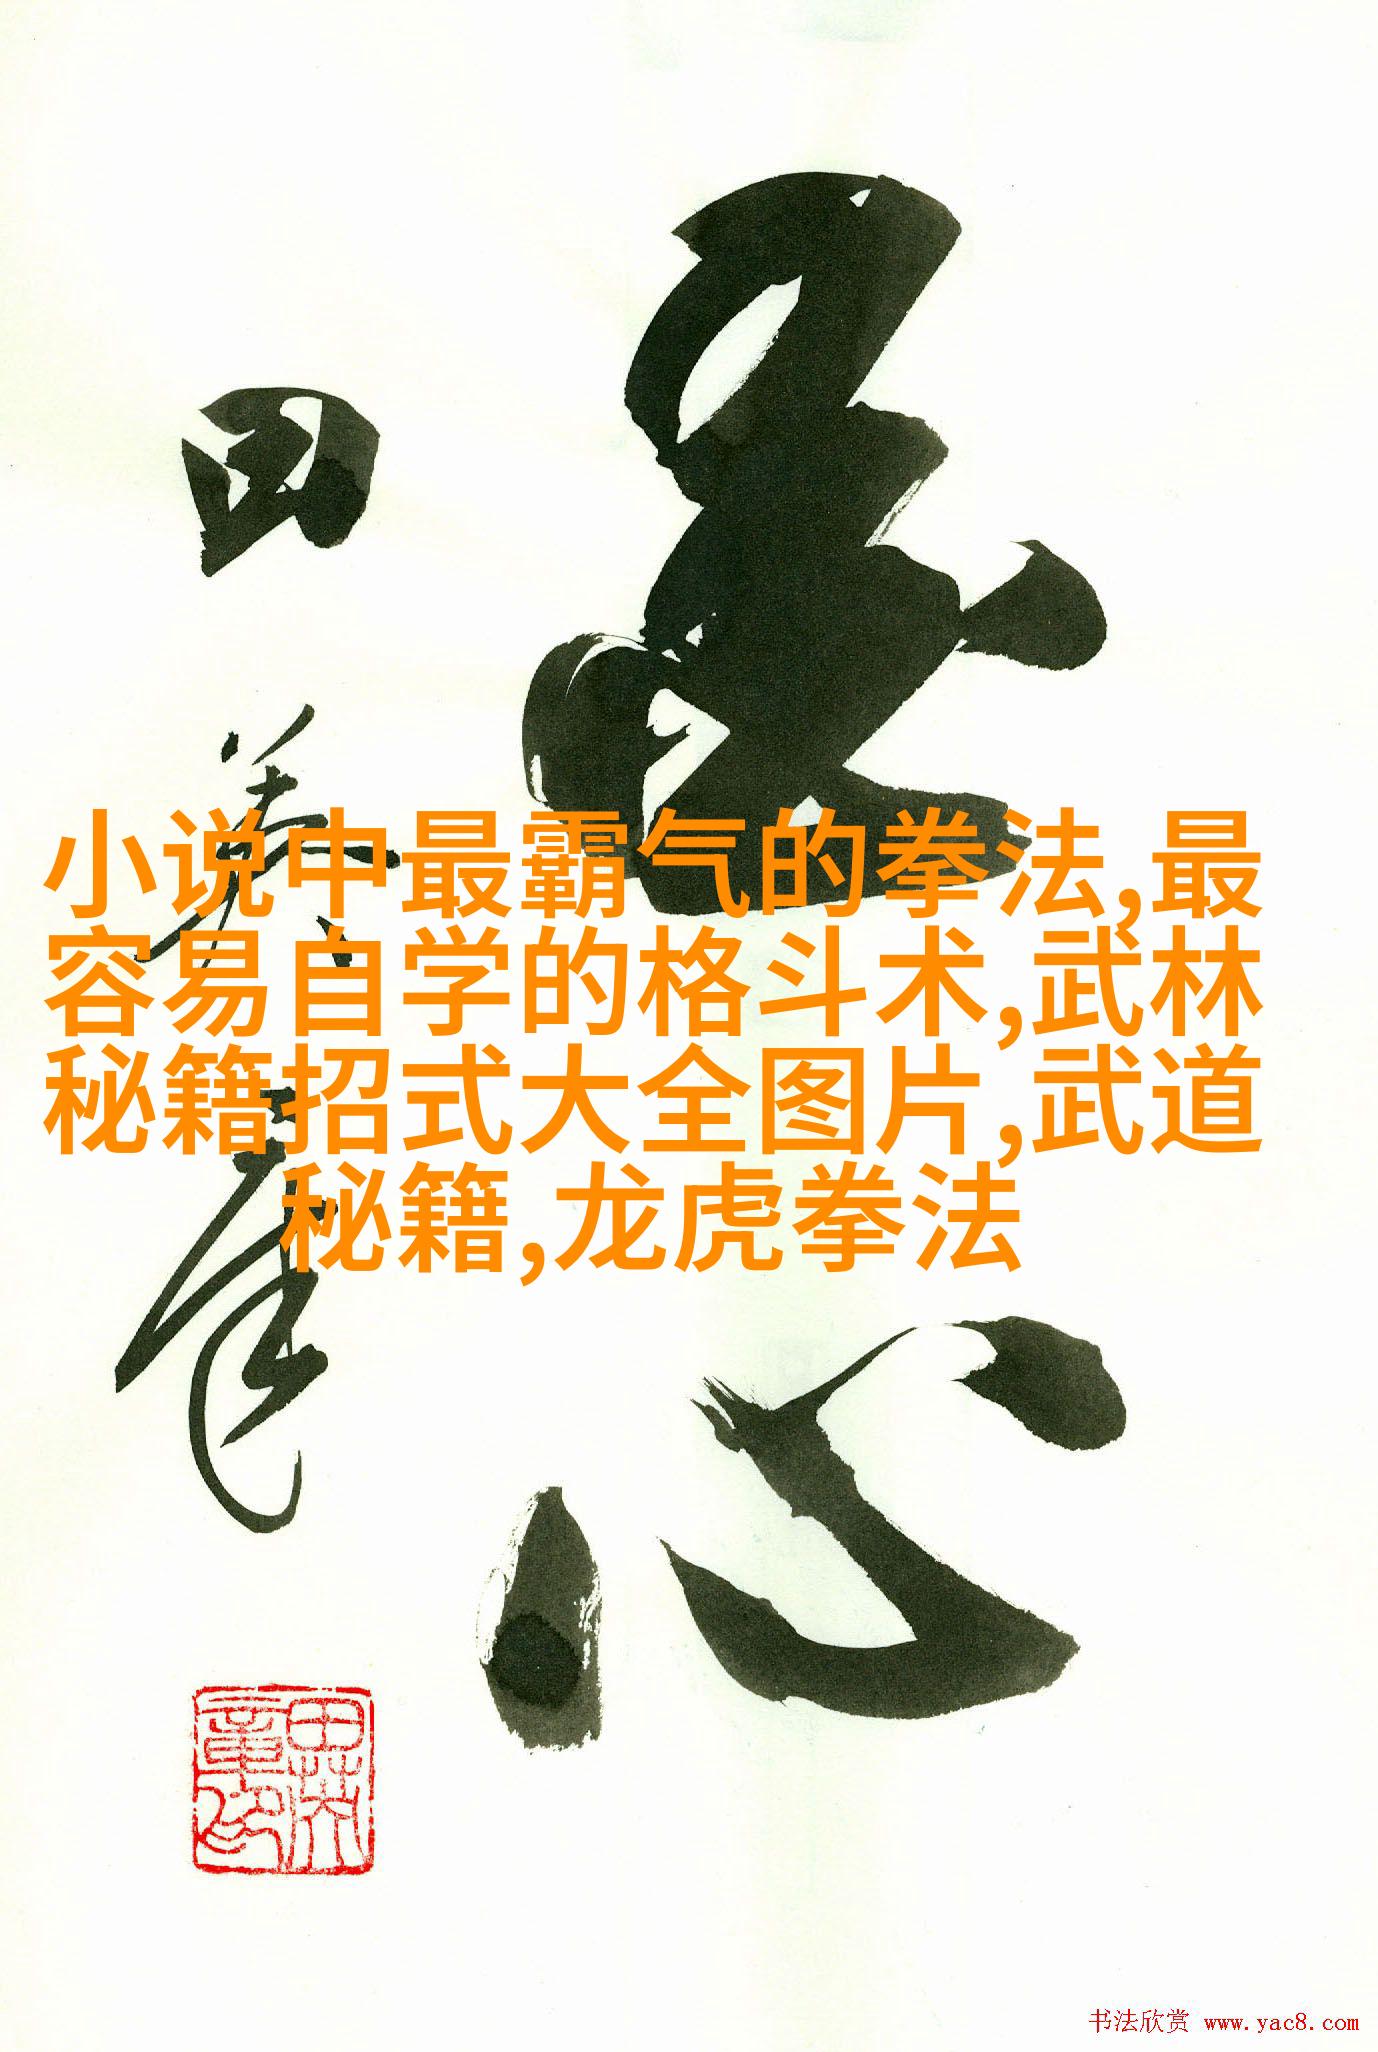 小说中最霸气的拳法,最
容易自学的格斗术,武林
秘籍招式大全图片,武道
秘籍,龙虎拳法
田英章
书法欣赏 www.yac8.com